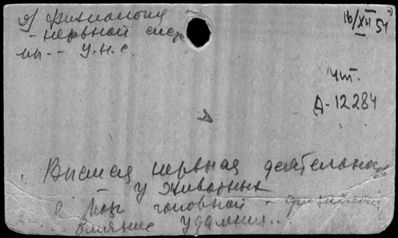 д) Физиология
- нервной сист
мы -- У.Н.С.
16/XII 51
Чт.
А-12284
А
. Высшая нервная деятельнос
у животных
2. Мозг головной -
влияние удаления..